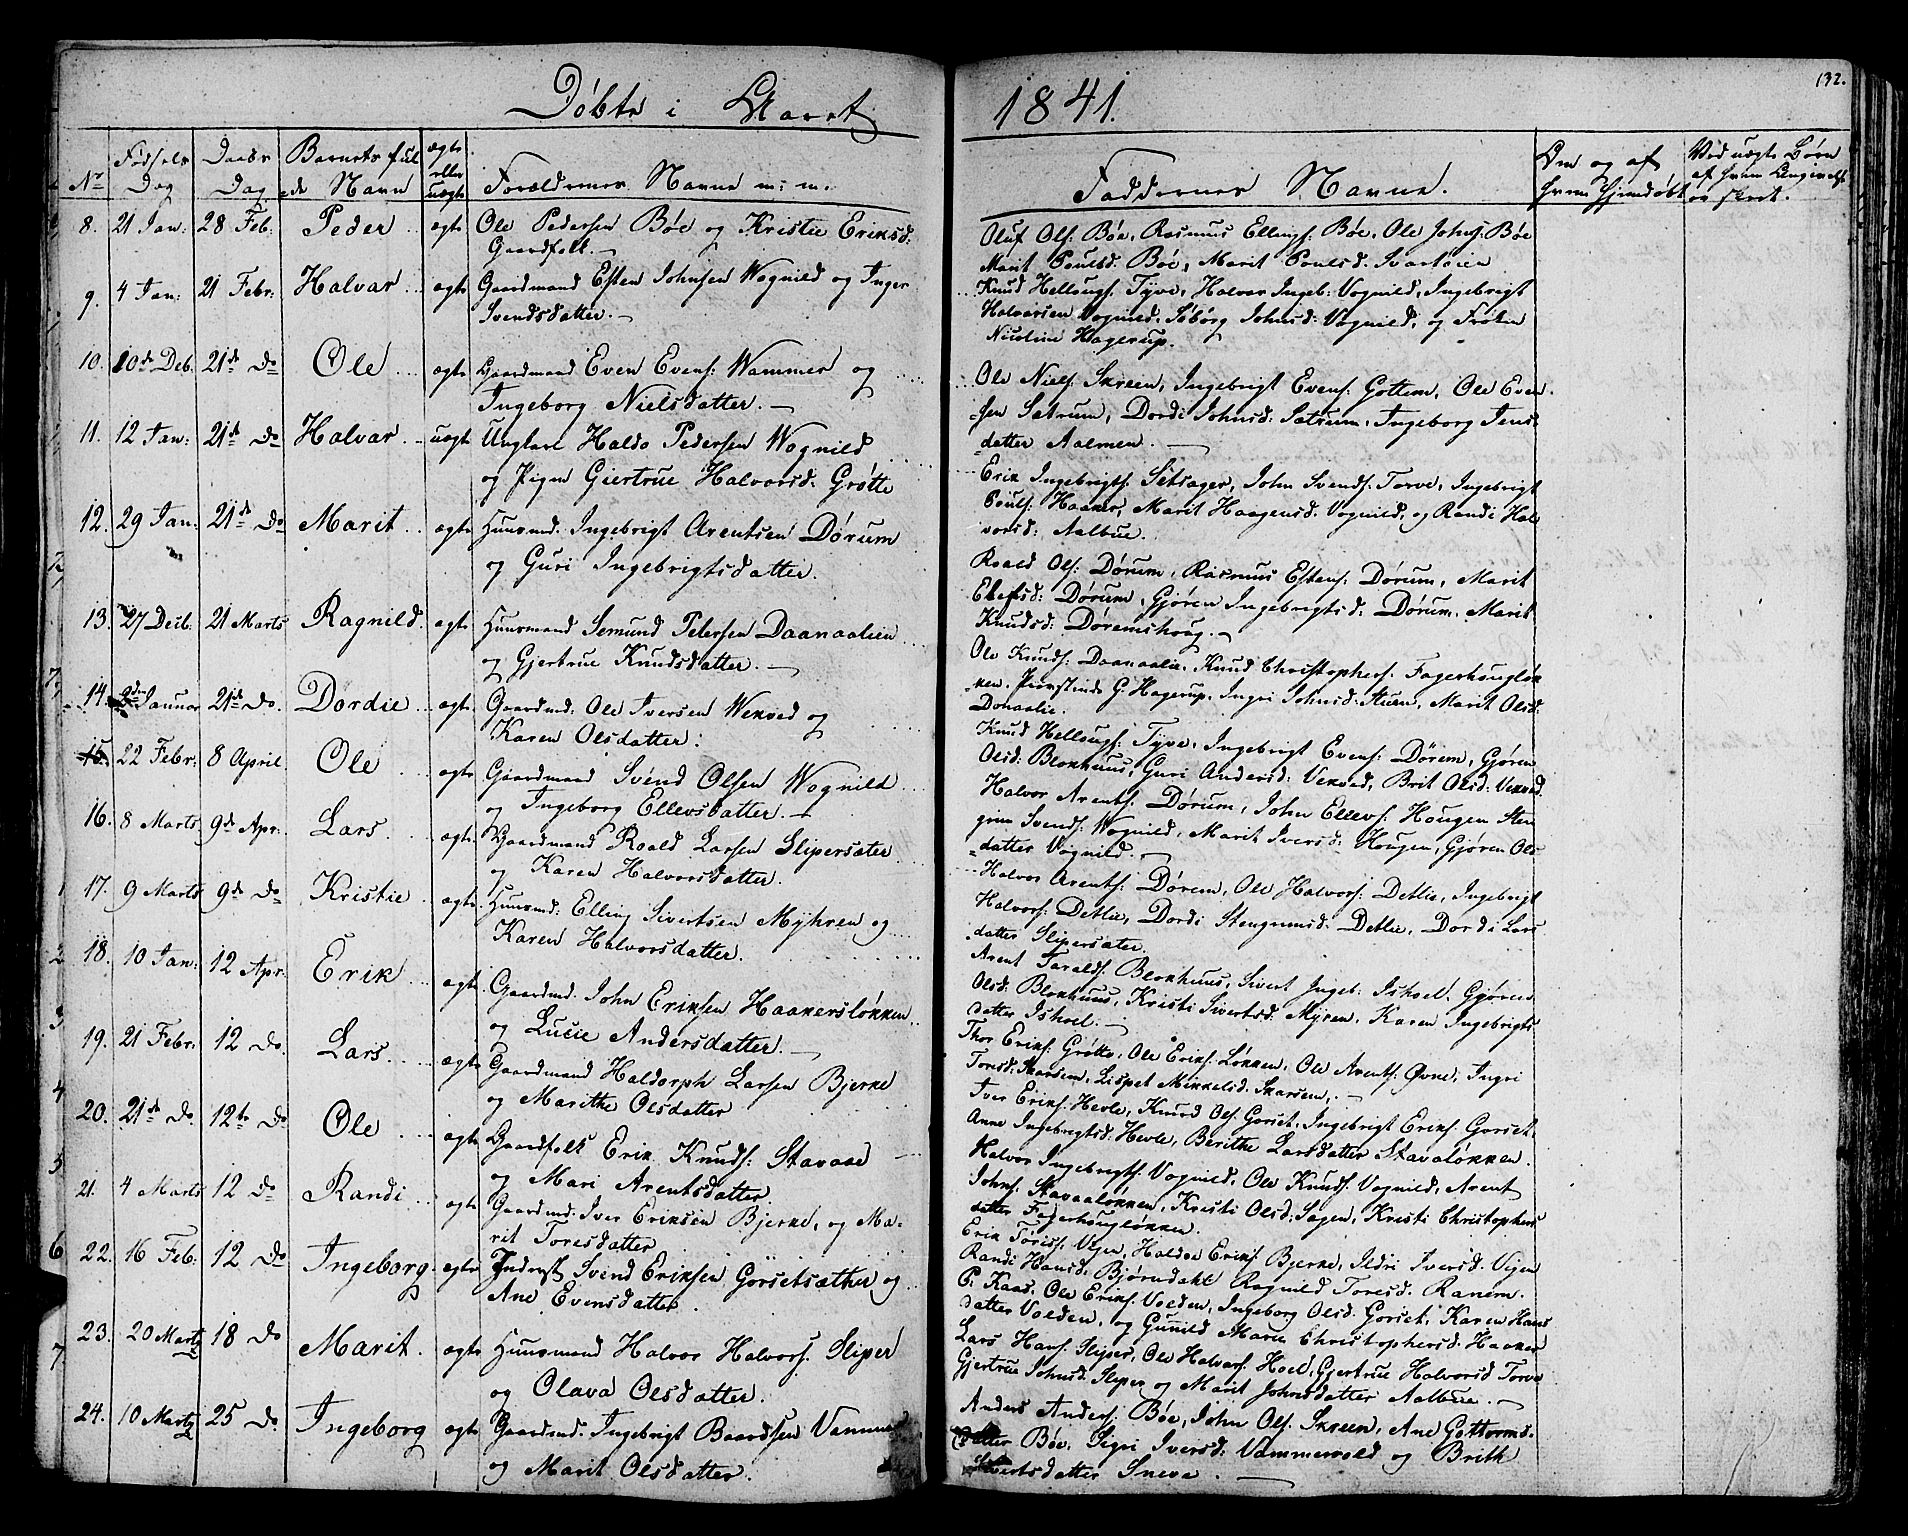 Døbte i Aaret 1841.
132.
No
Fødsels Dag
Daabs Dag
Barnets fulde Navn
ægte eller uægte
Forældrenes Navne m. m.
Faddernes Navne.
Om og af hvem hjemdøbt
Ved uægte Børn af hvem Angivelse er skeet.
8. 21 Jan: 28 Feb: Peder ægte Ole Pedersen Bøe og Kristie Eriksd:
Gaardfolk.
Oluf Ols: Bøe, Rasmus Ellings: Bøe, Ole Johns: Bøe
Marit Poulsd: Bøe, Marit Poulsd: Svartøien
9. 4 Jan: 21 Febr: Halvar ægte Gaardmand Esten Johnsen Wognild og Inger
Svendsdatter.
Knud Hellougs: Tyve, Halvor Ingeb: Vognild, Ingebrigt
Halvorsen Vognild, Søborg Johnsd: Vognild, og Frøken
Nicoline Hagerup.
10. 10de Deb. 21de Do Ole ægte Gaardmand Even Evens: Wammer og
Ingeborg Nielsdatter.
Ole Niels: Skreen, Ingebrigt Evens: Gottem, Ole Even
sen Satrum, Dordi Johnsd: Satrum, Ingeborg Jens
datter Aalmen.
11. 12 Jan: 21de Do Halvar uægte Ungkarl Haldo Pedersen Wognild
og Pigen Giertrue Halvorsd: Grøtte
Erik Ingebrigts: Sitsager, John Svends: Torve, Ingebrigt
Pouls: Haaker, Marit Haagensd: Vognild, og Randi Hal
vorsd: Aalbue.
12. 29 Jan: 21de Do Marit ægte Huusmd: Ingebrigt Arentsen Dørum
og Guri Ingebrigtsdatter.
Roald Ols: Dørum, Rasmus Estens: Dørum, Marit
Dørum, Gjøren Ingebrigtsd: Dørum, Marit
Knudsd: Døremshoug.
13. 27 Decb. 21 Marts Ragnild ægte Huusmand Semund Petersen Daanaalien
og Gjertrue Knudsdatter.
Ole Knuds: Daanaalie, Knud Christophers: Fagerhougløk
ken, Provstinde G: Hagerup, Ingri Johnsd: Stuen, Marit Olsd:
Donaalie.
14. Januar 21de Do. Dordie ægte Gaardmd: Ole Iversen Wekved og
Karen Olsdatter:
Knud Hellougs: Tyve, Ingebrigt Evens: Dørem, Gjøren
Olsd: Blokhuus, Guri Andersd: Vekved, Brit Olsd: Vekved
15. 22 Febr: 8 April. Ole ægte Gaardmand Svend Olsen Wognild
og Ingeborg Ellevsdatter.
Halvor Arents: Dørum, John Ellevs: Hougen Sten
grim Svends: Wognild, Marit Iversd: Hougen, Gjøren Ols
datter Vognild.
16. 8 Marts 9de Apr: Lars ægte Gaardmand Roald Larsen Slipersæter
og Karen Halvorsdatter.
Halvor Arents: Dørem, Ole Halvors: Detlie, Ingebrigt
Halvors: Detlie, Dordi Stengrimsd: Detlie, Dordi Lars
datter Slipersæter.
17. 9 Marts 9de Do Kristie ægte Huusmd: Elling Sivertsen Myhren og
Karen Halvorsdatter.
Arent Taralds: Blokhuus, Sivert Ingeb: Ishoel, Gjøren
Olsd: Blokhuus, Kristi Sivertsd: Myren, Karen Ingebrigts
datter Ishoel.
18. 10 Jan: 12 Apr. Erik ægte Gaardmd: John Eriksen Haakersløkken
og Lucie Andersdatter.
Thor Eriks: Grøtte, Ole Eriks: Løkken, Ole Arents: Øvne, Ingri
Toresd: Skarsem, Lispet Mikkelsd: Skarsem,
19. 21 Febr: 12 Do. Lars ægte Gaardmand Haldorph Larsen Bjerke
og Marithe Olsdatter
Iver Eriks: Hevle, Knud Ols: Gorset, Ingebrigt Eriks: Gorset,
Anne Ingebrigtsd: Hevle, Berithe Larsdatter Stavaløkken.
20. 21de Do. 12te Do Ole ægte Gaardfolk Erik Knuds: Stavaae
og Mari Arentsdatter.
Halvor Ingebrigts: Vognild, Ole Knuds: Vognild, Arent
Johns: Stavaaløkken, Kristi Olsd: Sagen, Kristi Christophers
datter Fagerhougløkken.
21. 4 Marts 12 Do Randi ægte Gaardmd: Iver Eriksen Bjerke, og Ma
rit Toresdatter
Erik Toris: Vejen, Haldoe Eriks: Bjerke, Ildri Iversd: Vejen
Randi Hansd: Bjørndahl Ragnild Toresd: Ranem.
22. 16 Feb: 12 Do Ingeborg ægte Inderst Svend Eriksen Gorsetsæther og
Ane Evensdatter.
P. Kaas, Ole Eriks: Volden, Ingeborg Olsd: Gorset, Karen Hans
datter Volden, og Gunild Marie Christophersd: Haaker
23. 20 Marts 18 Do Marit ægte Huusmand Halvor Halvors: Sliper
og Olava Olsdatter.
Lars Hans: Sliper, Ole Halvors: Hoel, Gjertrue Halvorsd Torve
Gjertrue Johnsd: Sliper og Marit Johnsdatter Aalbue.
24. 10 Marts 25 Do. Ingeborg ægte Gaardmd: Ingebrigt Baardsen Vammer
og Marit Olsdatter.
Anders Anders: Bøe, John Ols: Skreen, Ane Gottormsd
datter Bøe, Sigri Iversd: Vammervold og Brith
Sivertsdatter Sneve.